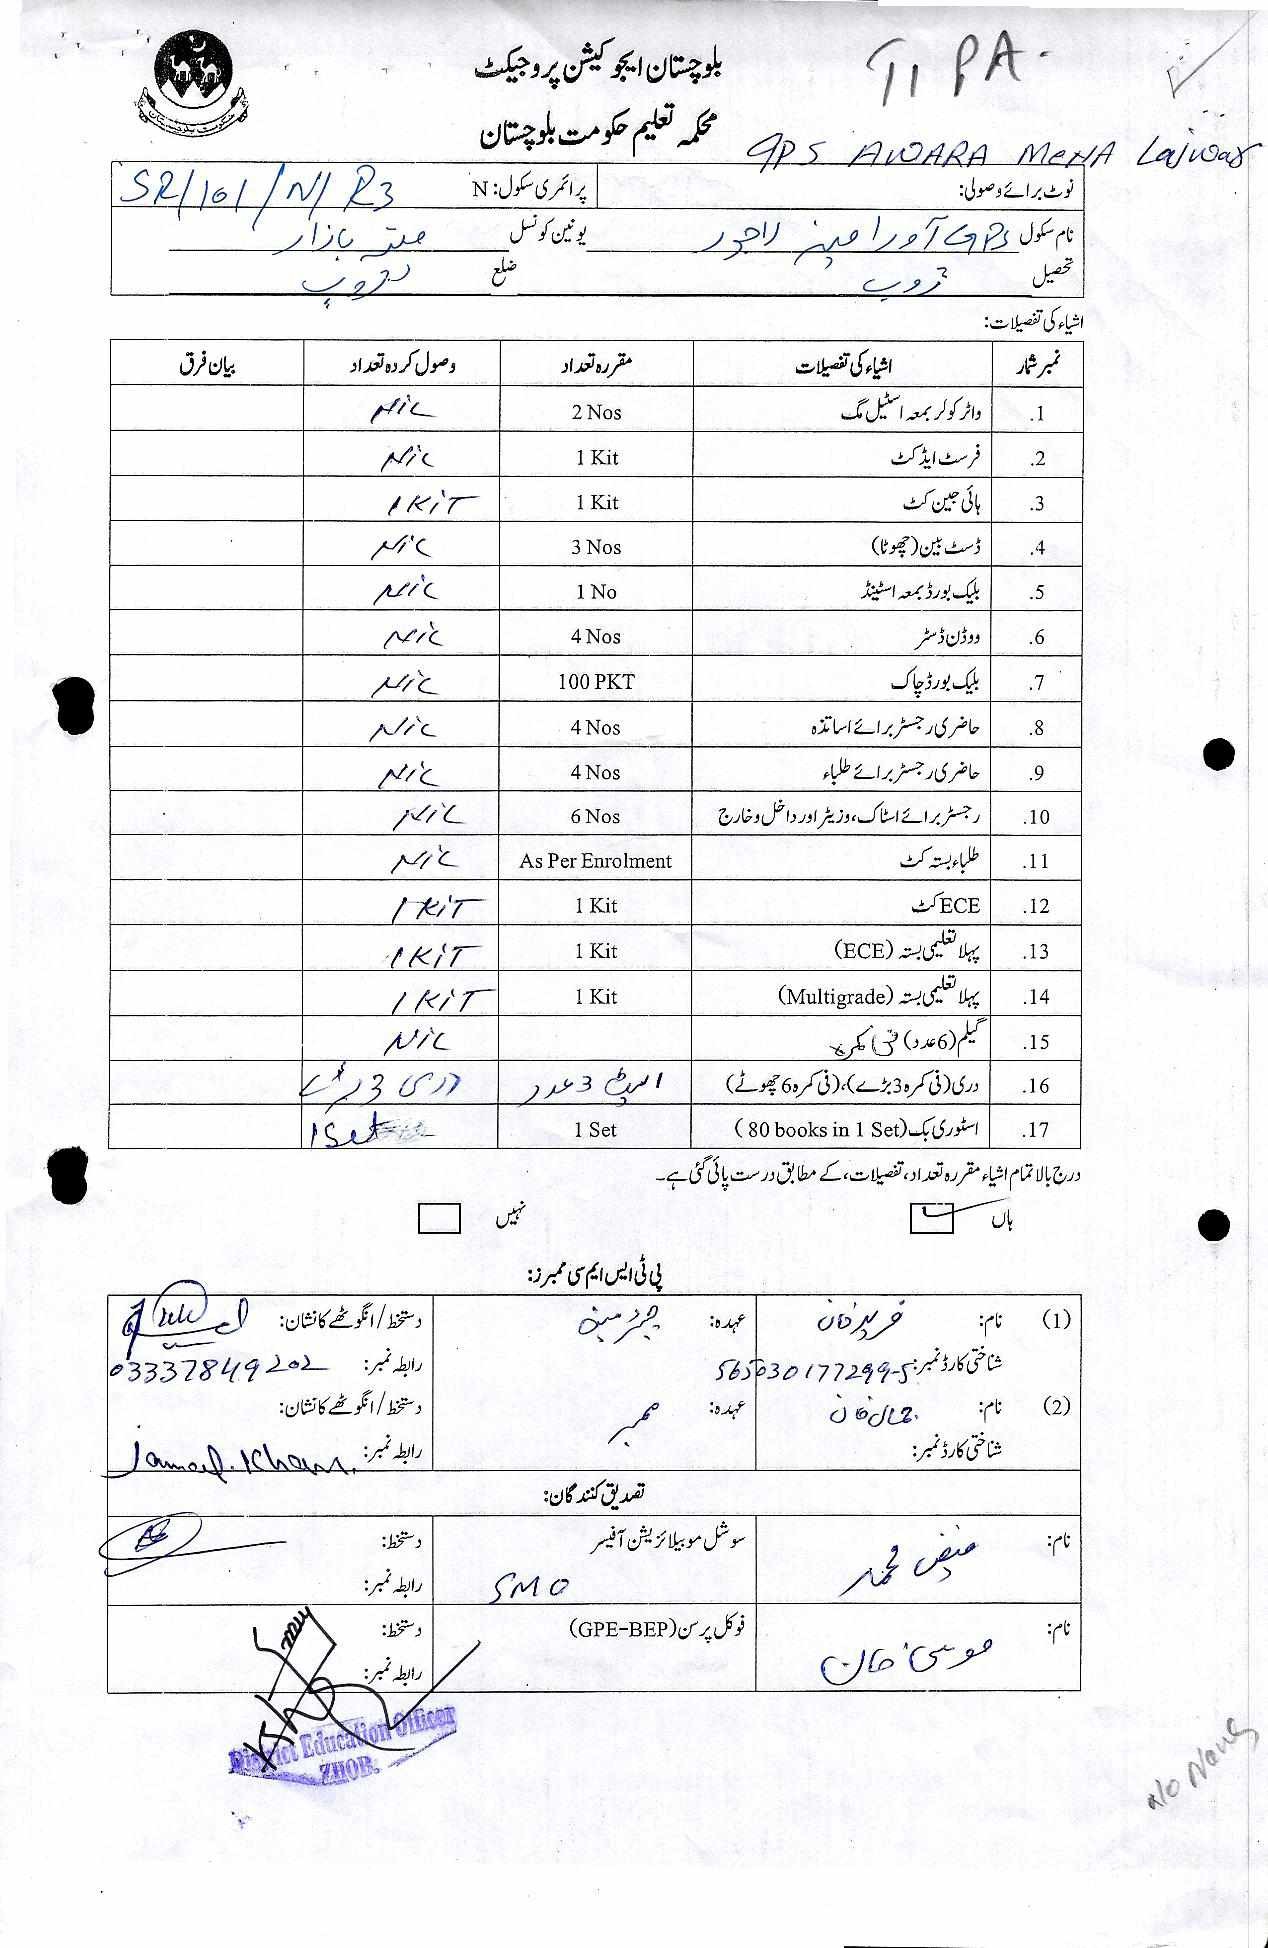 TIPA
بلوچستان ایجوکیشن پروجیکٹ
محکمہ تعلیم حکومت بلوچستان
GPS AWARA MeNA Lajwar
نوٹ برائے وصولی: پرائمری سکول: N SR/101/N/R3
نام سکول GPS آورا مینہ لاجور یونین کونسل بازار
تحصیل ژوب ضلع ژوب
اشیاء کی تفصیلات:
نمبر شمار اشیاء کی تفصیلات مقررہ تعداد وصول کردہ تعداد بیان فرق
1. واٹر کولر بمعہ اسٹیل مگ 2 Nos NiL
2. فرسٹ ایڈ کٹ 1 Kit NiL
3. ہائی جین کٹ 1 Kit 1 KiT
4. ڈسٹ بین (چھوٹا) 3 Nos NiL
5. بلیک بورڈ بمعہ اسٹینڈ 1 No NiL
6. ووڈن ڈسٹر 4 Nos NiL
7. بلیک بورڈ چاک 100 PKT NiL
8. حاضری رجسٹر برائے اساتذہ 4 Nos NiL
9. حاضری رجسٹر برائے طلباء 4 Nos NiL
10. رجسٹر برائے اسٹاک، وزیٹر اور داخل و خارج 6 Nos NiL
11. طلباء بستہ کٹ As Per Enrolment NiL
12. ECE کٹ 1 Kit 1 KiT
13. پہلا تعلیمی بستہ (ECE) 1 Kit 1 KiT
14. پہلا تعلیمی بستہ (Multigrade) 1 Kit 1 KiT
15. گیلم (6 عدد) فی کمرہ NiL
16. دری (فی کمرہ 3 بڑے)، (فی کمرہ 6 چھوٹے) 3 عدد دری 3 بڑے
17. اسٹوری بک (80 books in 1 Set) 1 Set 1 Set
درج بالا تمام اشیاء مقررہ تعداد، تفصیلات، کے مطابق درست پائی گئی ہے۔
ہاں نہیں
پی ٹی ایس ایم سی ممبرز:
(1) نام: فرید خان عہدہ: چیئرمین دستخط/انگوٹھے کا نشان:
شناختی کارڈ نمبر: 565030177299-5 رابطہ نمبر: 03337849202
(2) نام: جمال خان عہدہ: ممبر دستخط/انگوٹھے کا نشان:
شناختی کارڈ نمبر: رابطہ نمبر: Jamal. Khan.
تصدیق کنندگان:
نام: فیض محمد سوشل موبیلائزیشن آفیسر دستخط:
SMO رابطہ نمبر:
نام: موسیٰ خان فوکل پرسن (GPE-BEP) دستخط:
رابطہ نمبر:
District Education Officer
ZHOB.
No Name